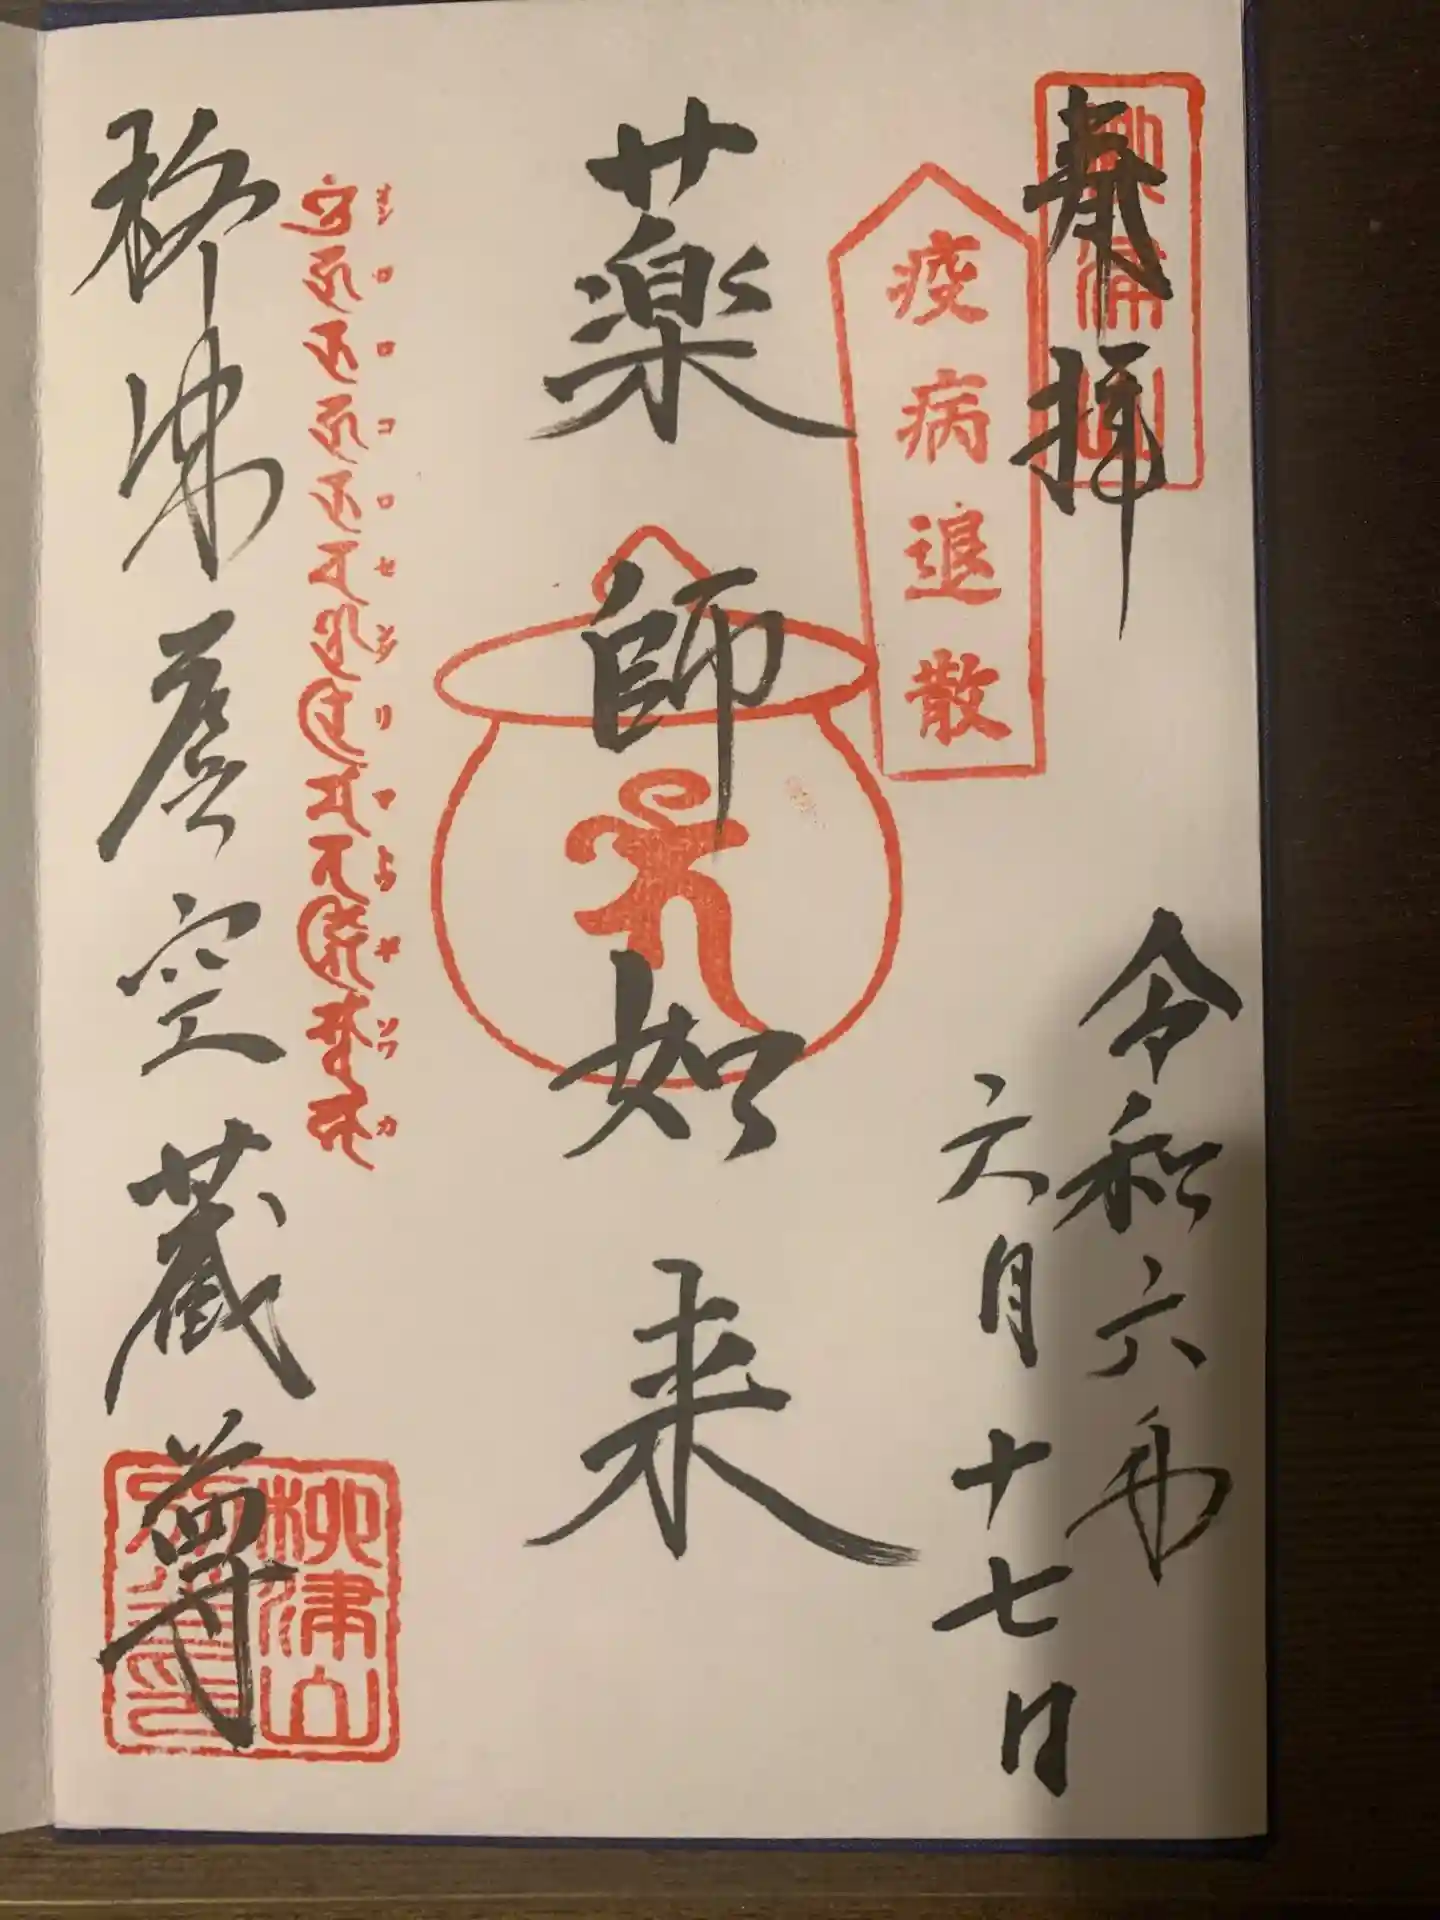 奉拝
柳津山
令和六年
六月十七日
疫病退散
薬師如来
オン コロコロ センダリ マトウギ ソワカ
柳津虚空蔵尊
柳津山